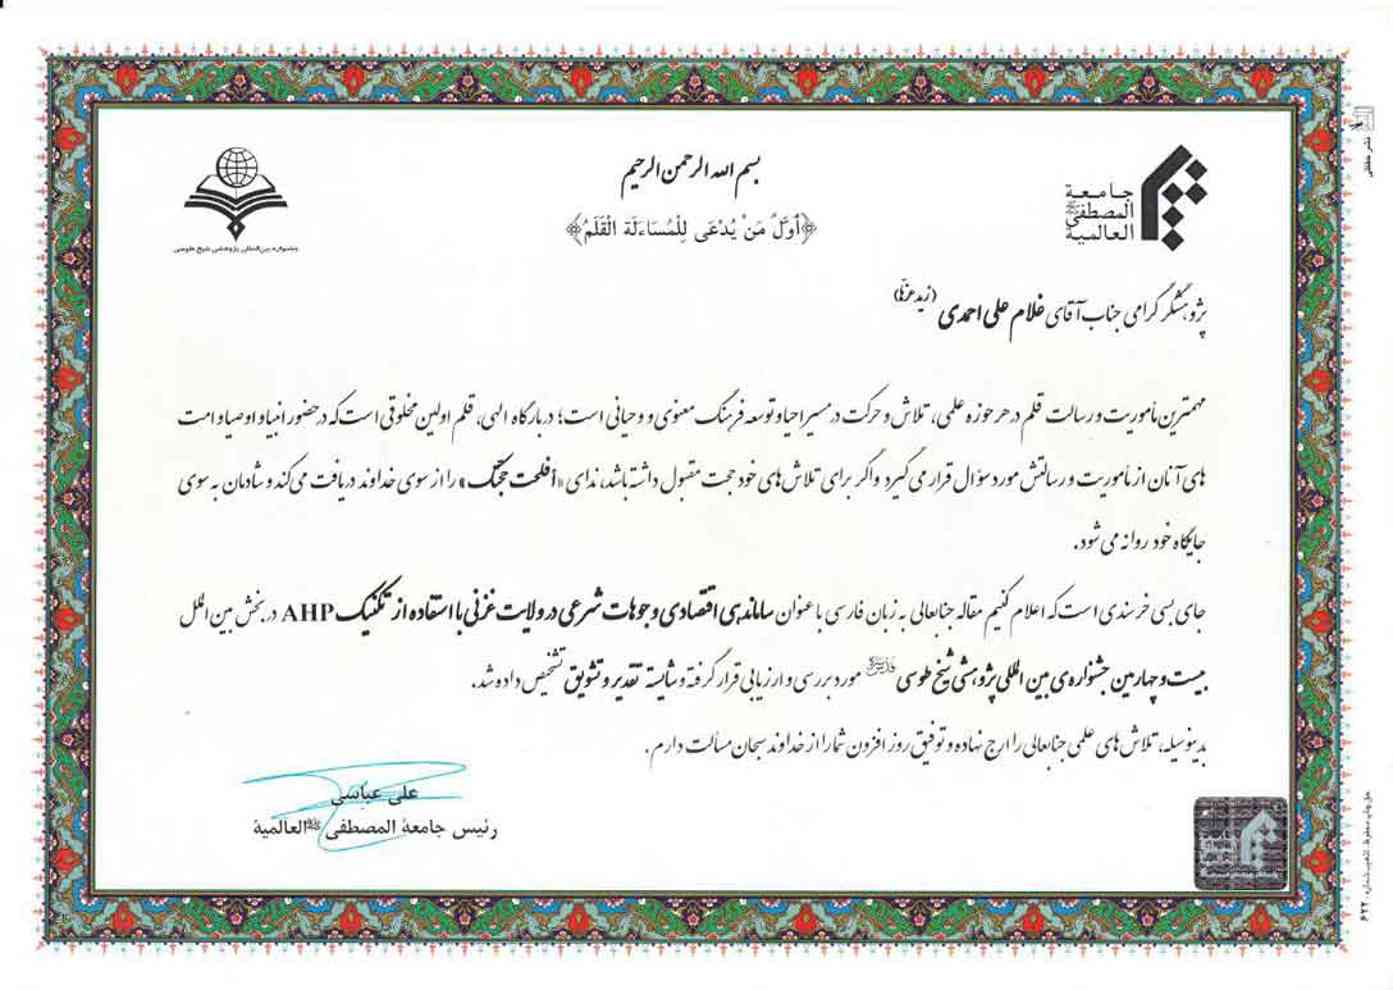 بسم الله الرحمن الرحیم
﴿أوَّلُ مَنْ یُدْعَی لِلْمُسَاءَلَة الْقَلَمُ﴾
جامعة
المصطفی
العالمیة
جشنواره بین‌المللی پژوهشی شیخ طوسی
پژوهشگر گرامی جناب آقای غلام علی احمدی (زید عزّه)
مهمترین مأموریت و رسالت قلم در هر حوزه علمی، تلاش و حرکت در مسیر احیا و توسعه فرهنگ معنوی و وحیانی است؛ در بارگاه الهی، قلم اولین مخلوقی است که در حضور انبیا و اوصیا و امت
های آنان از مأموریت و رسالتش مورد سؤال قرار می گیرد و اگر برای تلاش های خود حجت مقبول داشته باشد، ندای «أفلحت حجتک» را از سوی خداوند دریافت می کند و شادمان به سوی
جایگاه خود روانه می شود.
جای بسی خرسندی است که اعلام کنیم مقاله جنابعالی به زبان فارسی با عنوان ساماندهی اقتصادی وجوهات شرعی در ولایت غزنی با استفاده از تکنیک AHP در بخش بین الملل
بیست و چهارمین جشنواره‌ی بین المللی پژوهشی شیخ طوسی مورد بررسی و ارزیابی قرار گرفته و شایسته تقدیر و تشویق تشخیص داده شد.
بدینوسیله، تلاش های علمی جنابعالی را ارج نهاده و توفیق روز افزون شما را از خداوند سبحان مسألت دارم.
علی عباسی
رئیس جامعة المصطفی العالمیة
جامعة
المصطفی
العالمیة